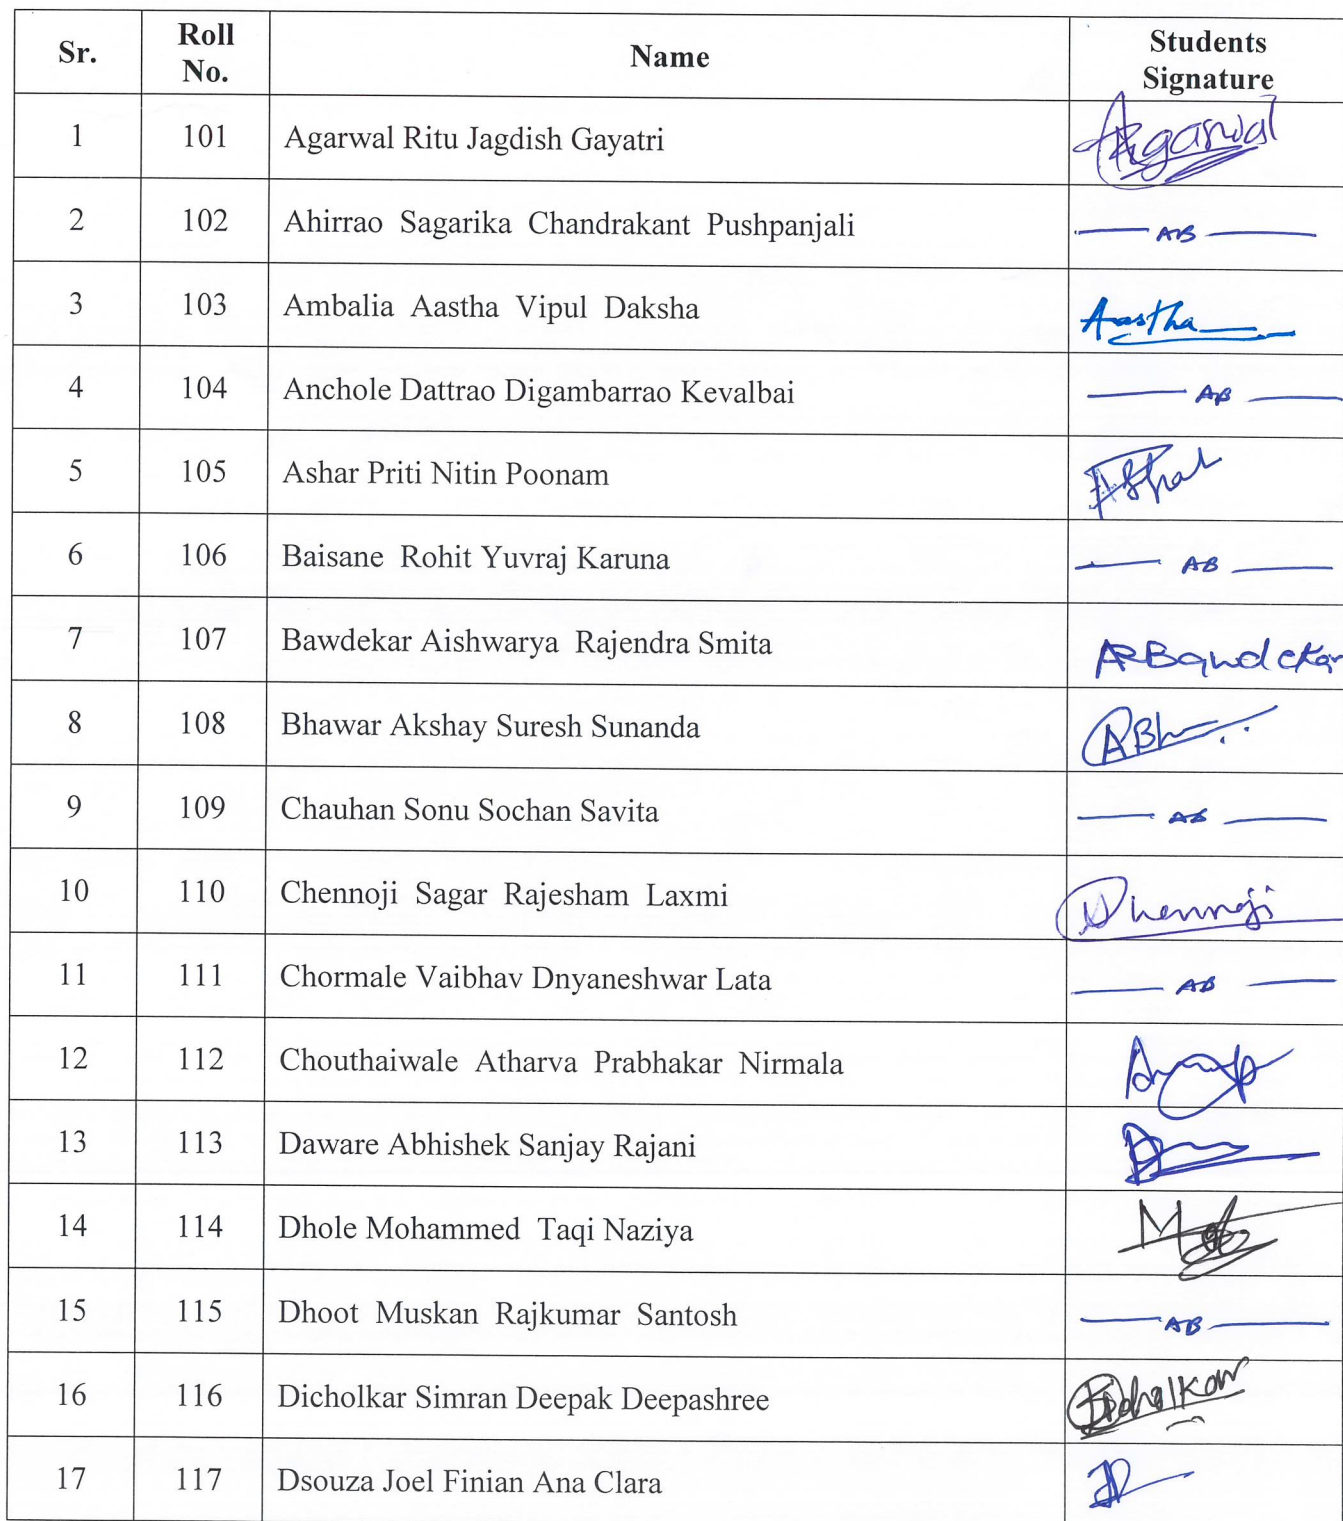 Sr. Roll No. Name Students Signature
1 101 Agarwal Ritu Jagdish Gayatri Agarwal
2 102 Ahirrao Sagarika Chandrakant Pushpanjali — AB —
3 103 Ambalia Aastha Vipul Daksha Aastha
4 104 Anchole Dattrao Digambarrao Kevalbai — AB —
5 105 Ashar Priti Nitin Poonam
6 106 Baisane Rohit Yuvraj Karuna — AB —
7 107 Bawdekar Aishwarya Rajendra Smita ARBawdekar
8 108 Bhawar Akshay Suresh Sunanda
9 109 Chauhan Sonu Sochan Savita — AB —
10 110 Chennoji Sagar Rajesham Laxmi
11 111 Chormale Vaibhav Dnyaneshwar Lata — AB —
12 112 Chouthaiwale Atharva Prabhakar Nirmala
13 113 Daware Abhishek Sanjay Rajani
14 114 Dhole Mohammed Taqi Naziya
15 115 Dhoot Muskan Rajkumar Santosh — AB —
16 116 Dicholkar Simran Deepak Deepashree
17 117 Dsouza Joel Finian Ana Clara